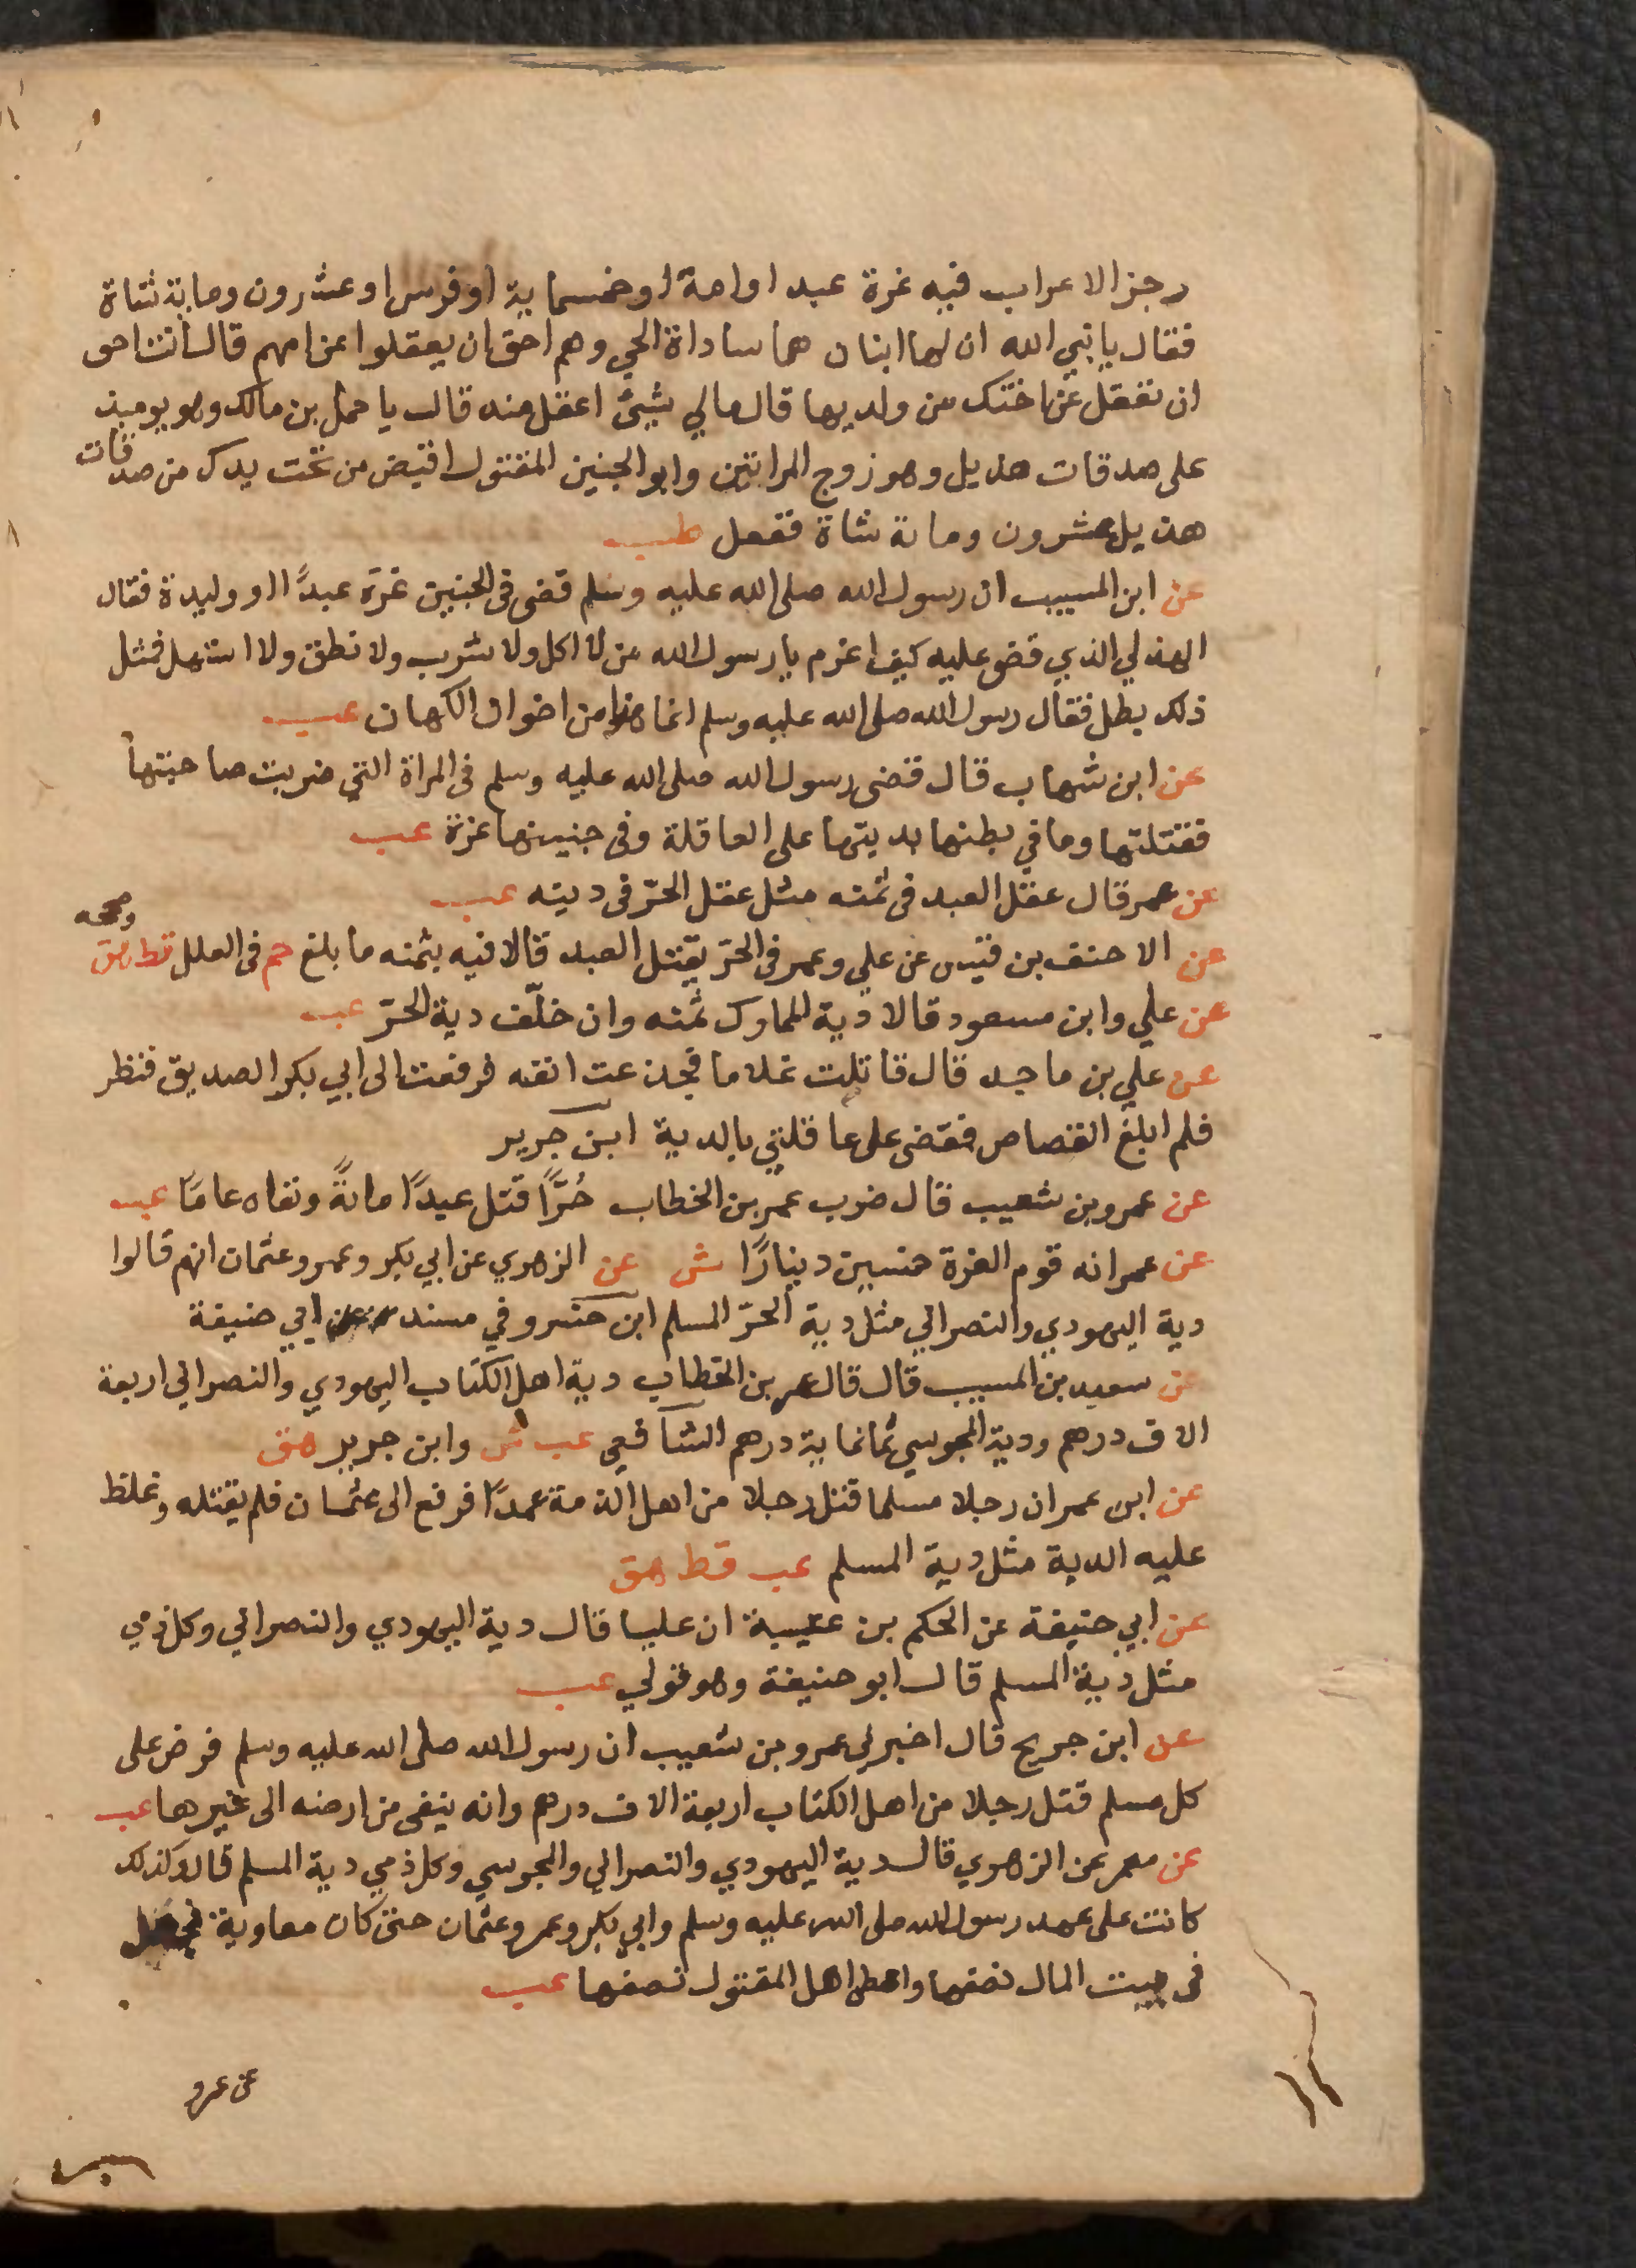 رجز الاعراب فيه غرة عبد او امة او خمسماية او فرس او عشرون وماية شاة
فقال يا نبي الله ان لها ابنان هما ساداة الحي وهم احق ان يعقلوا عن امهم قال انت احق
ان تعقل عن اختك من ولديها قال مالي شيئ اعقل منه قال يا حمل بن مالك وهو يوميذ
على صدقات هذيل وهو زوج المراتين وابو الجنين المقتول اقبض من تحت يدك من صدقات
هذيل عشرون وماية شاة ففعل طب
عن ابن المسيب ان رسول الله صلى الله عليه وسلم قضى فى الجنين غرة عبدًا او وليدة فقال
الهذلي الذي قضى عليه كيف اغرم يا رسول الله من لا اكل ولا شرب ولا نطق ولا استهل فمثل
ذلك يطل فقال رسول الله صلى الله عليه وسلم انما هذا من اخوان الكهان عب
عن ابن شهاب قال قضى رسول الله صلى الله عليه وسلم فى المراة التي ضربت صاحبتها
فقتلتها وما في بطنها بديتها على العاقلة وفى جنينها غرة عب
عن عمر قال عقل العبد فى ثمنه مثل عقل الحرّ فى ديته عب
عن الاحنف بن قيس عن علي وعمر فى الحرّ يقتل العبد قالا فيه بثمنه ما بلغ حم فى العلل قط هق وصححه
عن علي وابن مسعود قالا دية المملوك ثمنه وان خلّف دية الحرّ عب
عن علي بن ماجد قال قاتلت غلاما فجدعت انفه فرفعت الى ابي بكر الصديق فنظر
فلم ابلغ القصاص فقضى على عاقلتي بالدية ابن جرير
عن عمرو بن شعيب قال ضرب عمر بن الخطاب حُرًّا قتل عبدًا مائةً ونفاه عامًا عب
عن عمر انه قوم الغرة خمسين دينارًا ش عن الزهري عن ابي بكر وعمر وعثمان انهم قالوا
دية اليهودي والنصراني مثل دية الحرّ المسلم ابن خسرو في مسند ابي حنيفة
عن سعيد بن المسيب قال قال عمر بن الخطاب دية اهل الكتاب اليهودي والنصراني اربعة
الاف درهم ودية المجوسي ثمانماية درهم الشافعي عب ش وابن جرير هق
عن ابن عمر ان رجلا مسلما قتل رجلا من اهل الذمة عمدًا فرفع الى عثمان فلم يقتله وغلظ
عليه الدية مثل دية المسلم عب قط هق
عن ابي حنيفة عن الحكم بن عتيبة ان عليا قال دية اليهودي والنصراني وكل ذمي
مثل دية المسلم قال ابو حنيفة وهو قولي عب
عن ابن جريج قال اخبرني عمرو بن شعيب ان رسول الله صلى الله عليه وسلم فرض على
كل مسلم قتل رجلا من اهل الكتاب اربعة الاف درهم وانه ينفى من ارضه الى غيرها عب
عن معمر عن الزهري قال دية اليهودي والنصراني والمجوسي وكل ذمي دية المسلم قال وكذلك
كانت على عهد رسول الله صلى الله عليه وسلم وابي بكر وعمر وعثمان حتى كان معاوية فجعل
فى بيت المال نصفها واعطى اهل المقتول نصفها عب
عن عمرو